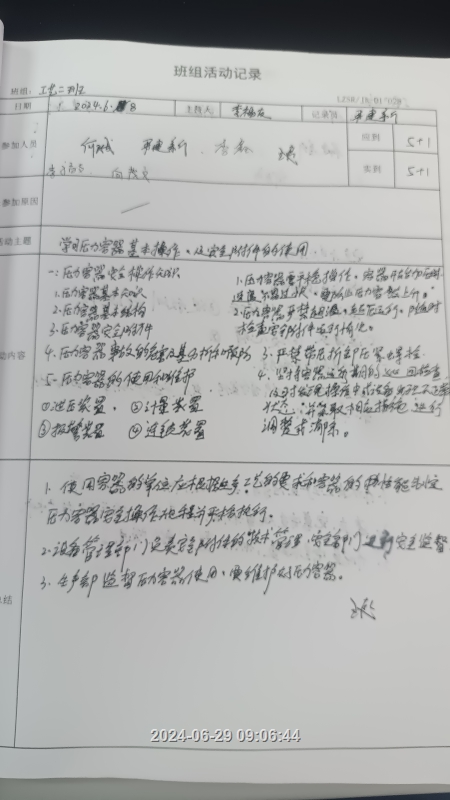 班组活动记录
班组: 工艺二班
日期 2024.6.8 主持人 记录人
参加人员 应到 5+1
实到 5+1
参加原因
活动主题 学习压力容器基本操作,及安全附件的使用.
一:压力容器安全操作知识
1.压力容器基本知识
2.压力容器基本结构
3.压力容器安全附件
4.压力容器事故的危害及其分析和预防
5.压力容器的使用和维护
①泄压装置. ②计量装置
③报警装置 ④连锁装置
活动内容
1.压力容器严格操作,容器开始加载时
速度不宜过快,
2.压力容器严禁超温、超压运行,
检查安全附件是否
3.严禁带压拆卸压紧螺栓.
4.对容器运行期间的巡回检查,
及时发现操作中或设备出现不正常
状态,并采取相应措施进行
调整或消除.
总结
1.使用容器的单位应根据生产工艺的要求和容器的技术性能制定
压力容器安全操作规程并严格执行.
2.设备管理部门负责安全附件的技术管理,安全部门进行安全监督
3.生产部监督压力容器使用,要维护好压力容器.
2024-06-29 09:06:44